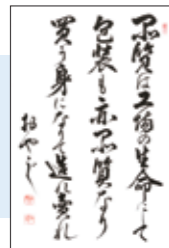 品質は工場の生命にして
包装も亦品質なり
買う身になりて造れ売れ